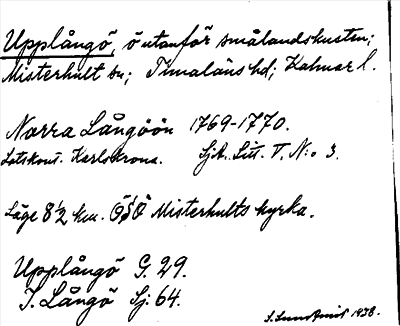 Upplångö, ö utanför smålandskusten;
Misterhult sn; Tunaläns hd; Kalmar l.
Norra Långöön 1769-1770.
Lotskont. Karlskrona. Sjk. Litt. T. N:o 3.
Läge 8 1/2 km. ÖSÖ Misterhults kyrka.
Upplångö G. 29.
I. Långö Sj. 64.
1938.